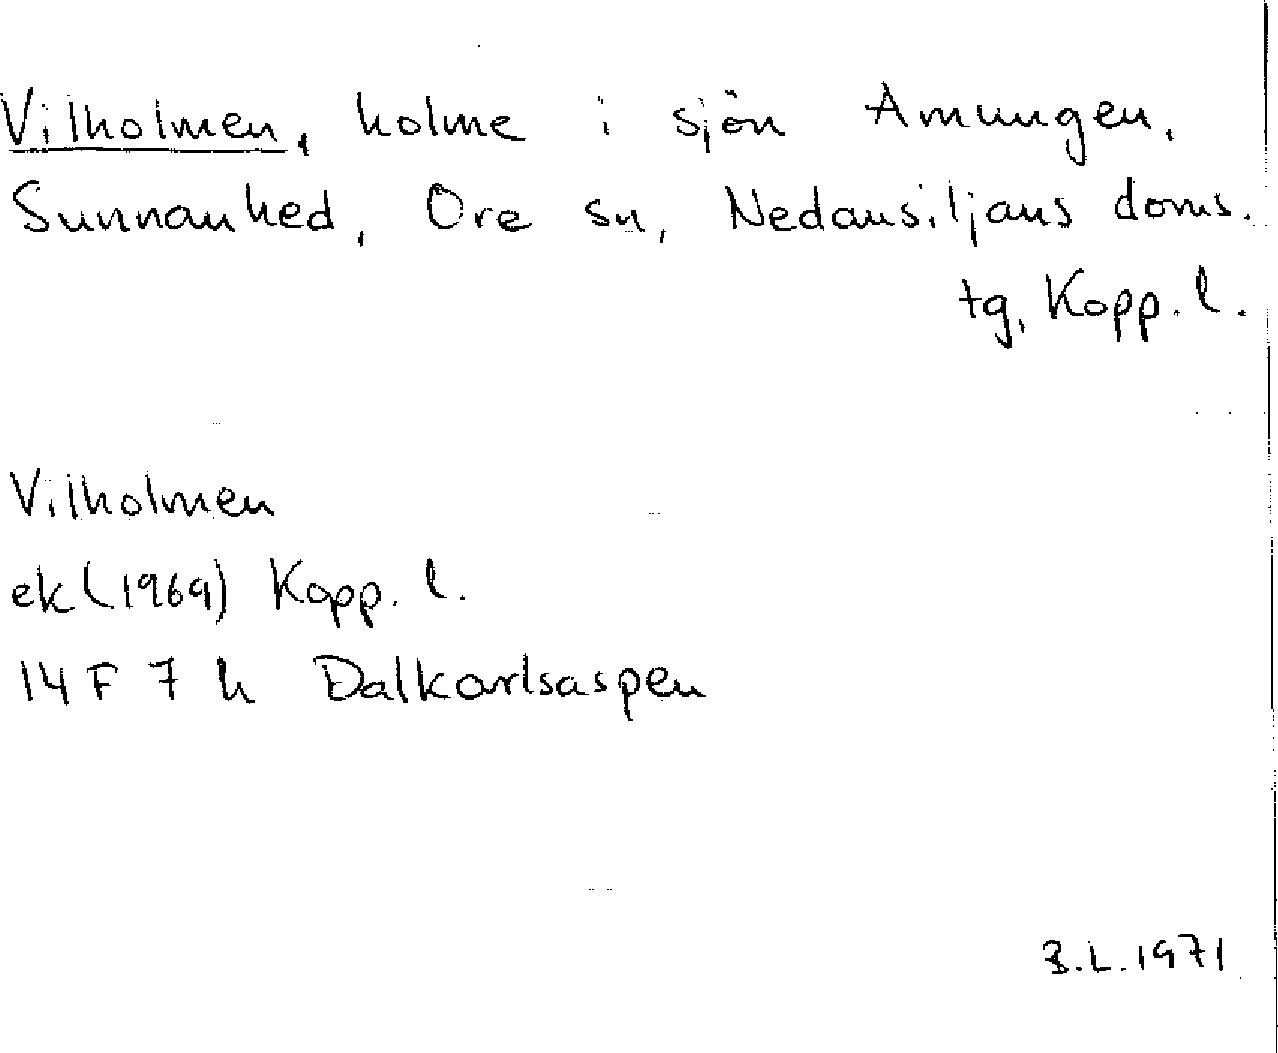 Vilholmen, holme i sjön Amungen,
Sunnanhed, Ore sn, Nedansiljans doms.
tg, Kopp. l.
Vilholmen
ek (1969) Kopp. l.
14 F 7 h Dalkarlsaspen
B.L. 1971